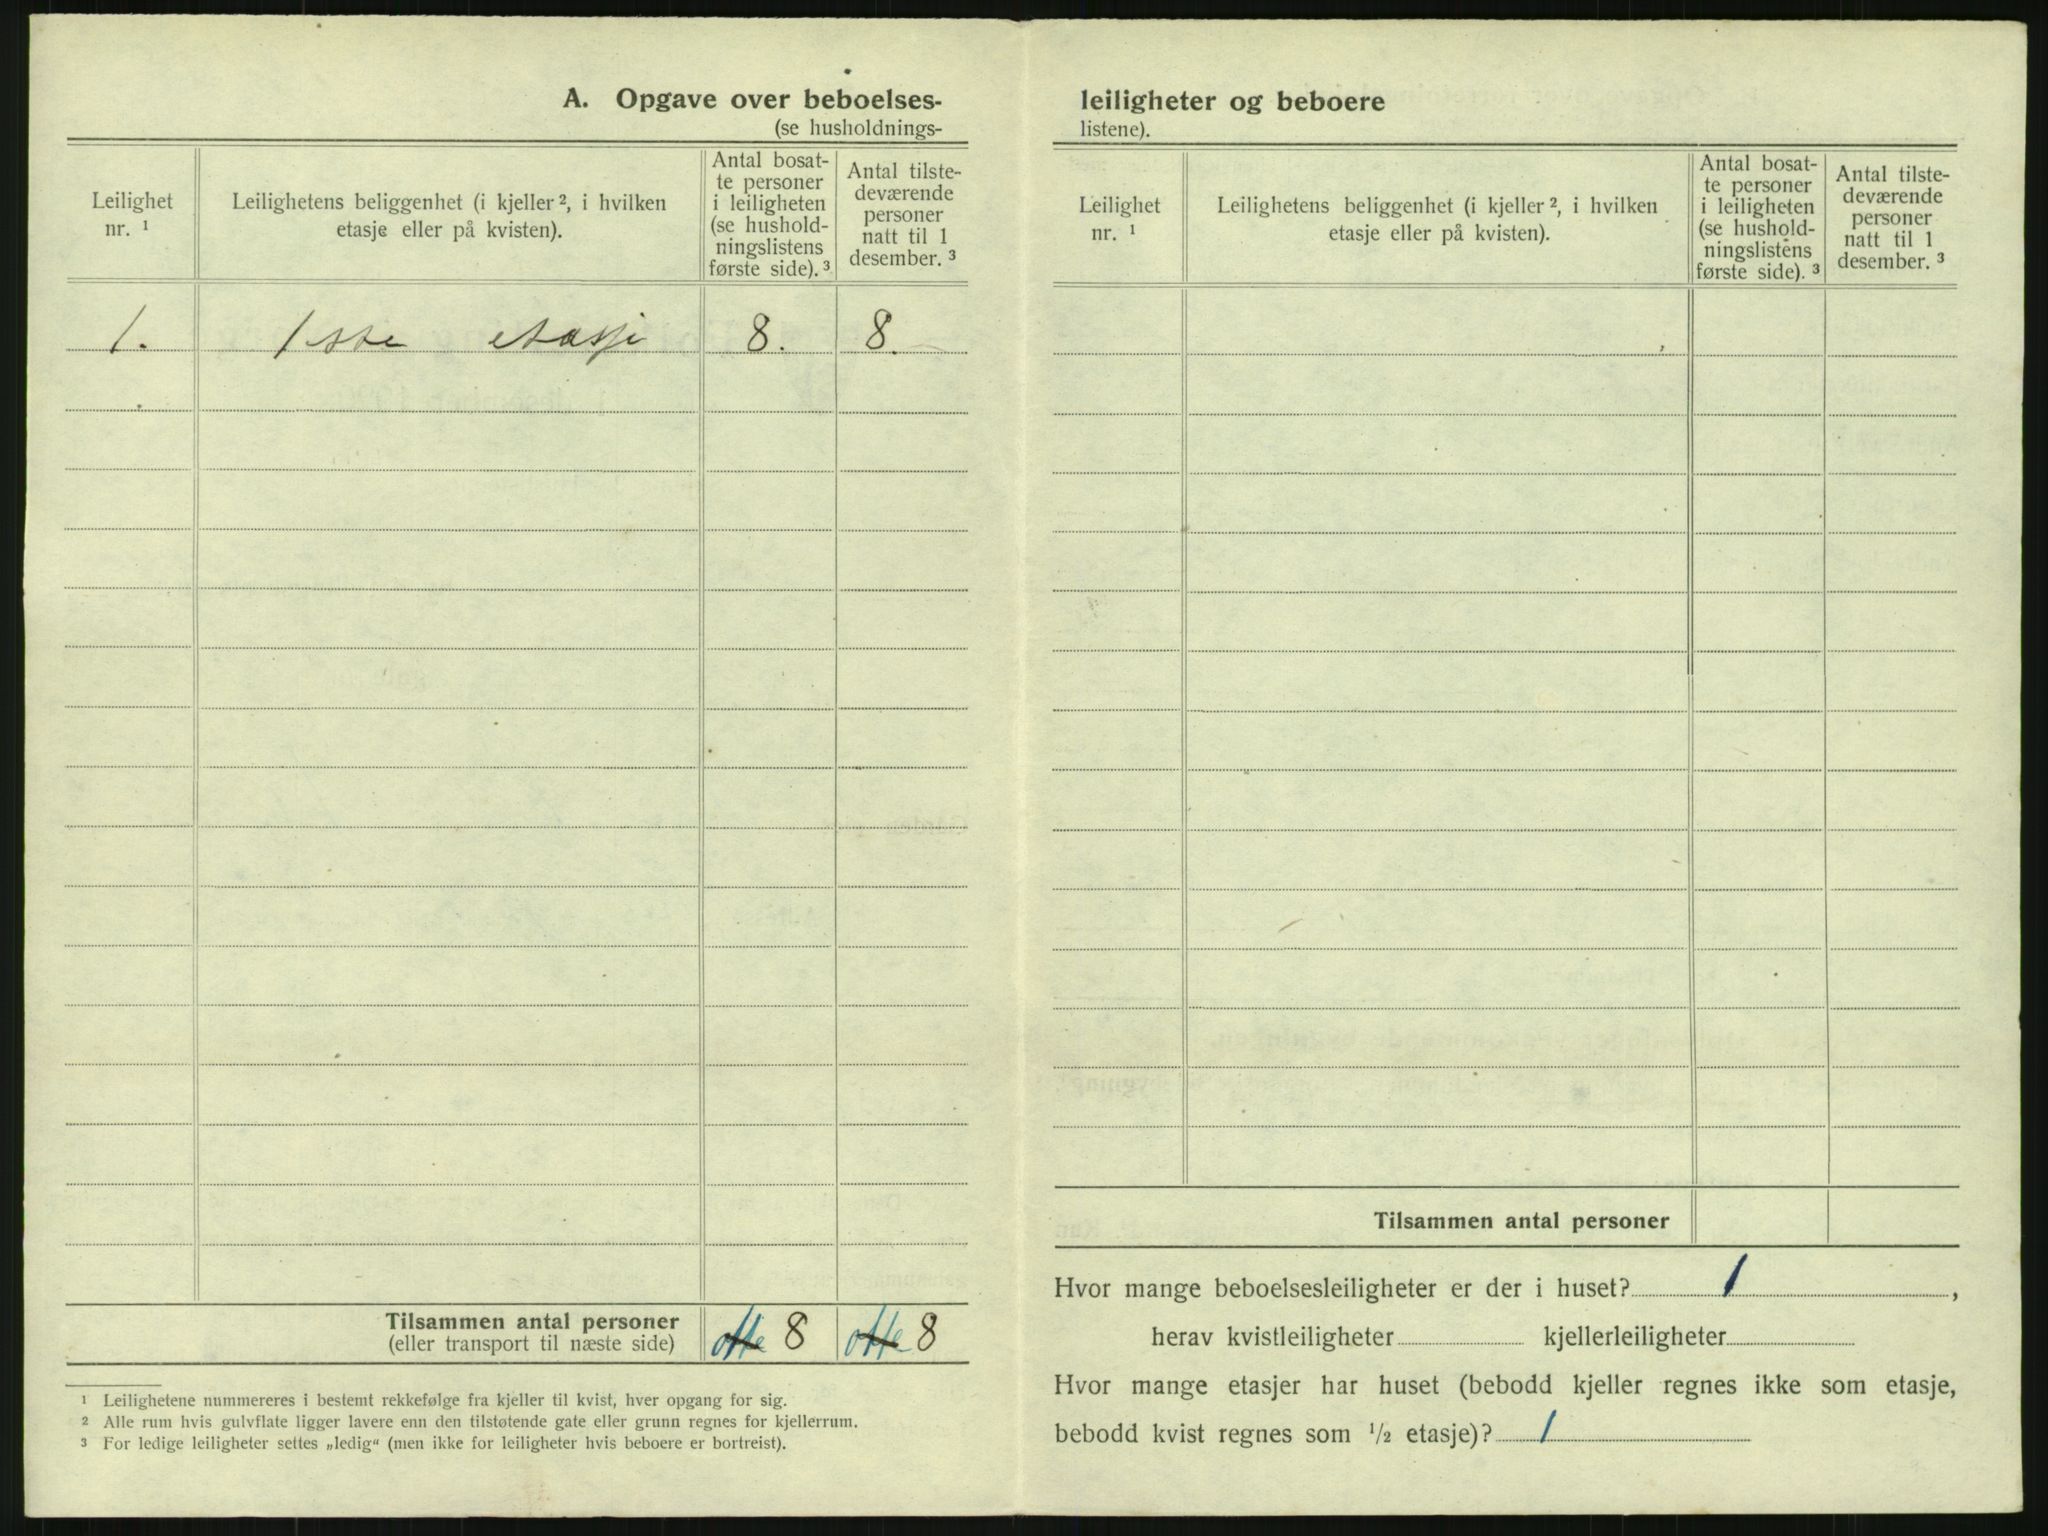 A. Opgave over beboelses-
(se husholdnings-
Leilighet
nr. 1
Leilighetens beliggenhet (i kjeller 2, i hvilken
etasje eller på kvisten).
Antal bosat-
te personer
i leiligheten
(se hushold-
ningslistens
første side). 3
Antal tilste-
deværende
personer
natt til 1
desember. 3
1. 1ste etasje 8. 8.
Tilsammen antal personer
(eller transport til næste side)
otte 8 otte 8
1 Leilighetene nummereres i bestemt rekkefølge fra kjeller til kvist, hver opgang for sig.
2 Alle rum hvis gulvflate ligger lavere enn den tilstøtende gate eller grunn regnes for kjellerrum.
3 For ledige leiligheter settes „ledig“ (men ikke for leiligheter hvis beboere er bortreist).
leiligheter og beboere
listene).
Leilighet
nr. 1
Leilighetens beliggenhet (i kjeller 2, i hvilken
etasje eller på kvisten).
Antal bosat-
te personer
i leiligheten
(se hushold-
ningslistens
første side). 3
Antal tilste-
deværende
personer
natt til 1
desember. 3
Tilsammen antal personer
Hvor mange beboelsesleiligheter er der i huset? 1,
herav kvistleiligheter kjellerleiligheter
Hvor mange etasjer har huset (bebodd kjeller regnes ikke som etasje,
bebodd kvist regnes som 1/2 etasje)? 1